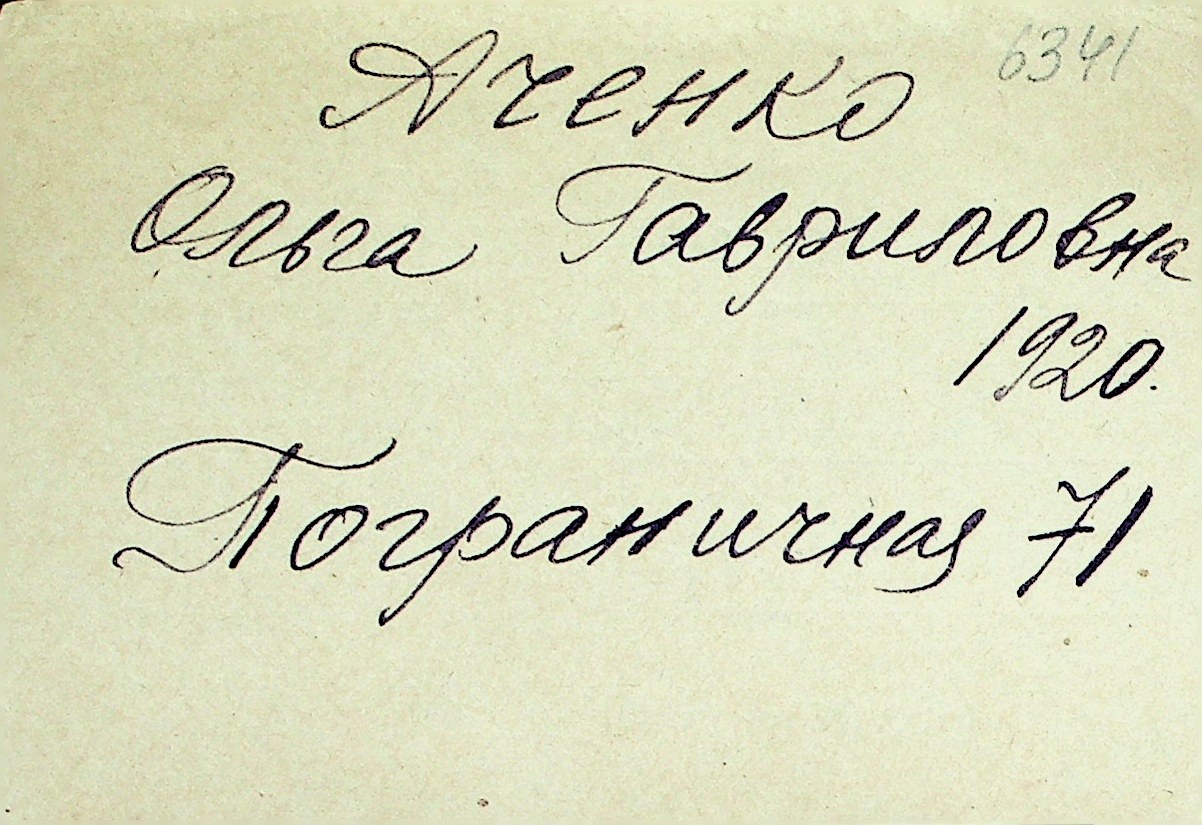 6341
Яченко
Ольга Гавриловна
1920.
Пограничная 71